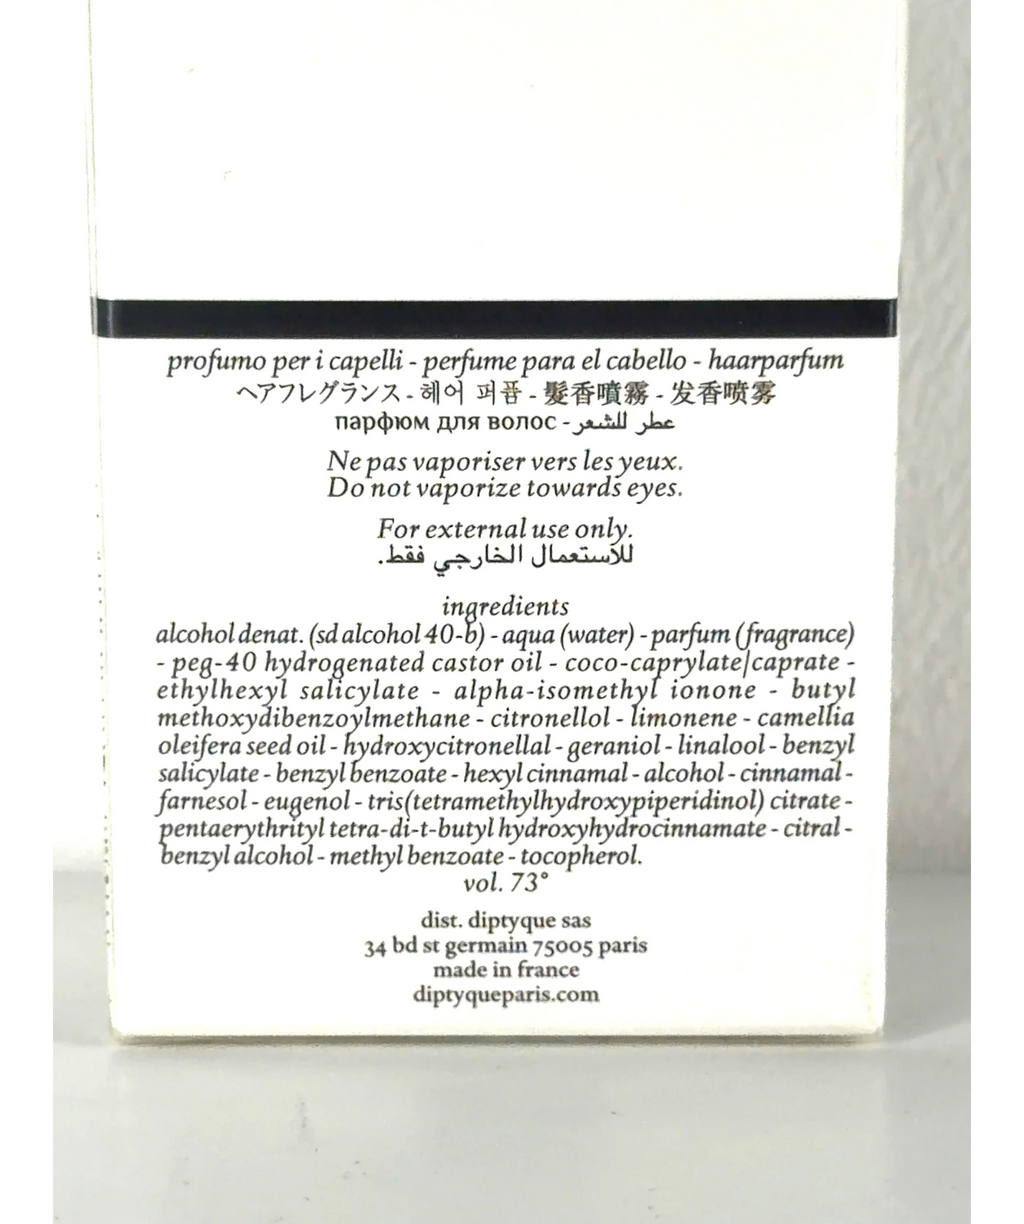 profumo per i capelli - perfume para el cabello - haarparfum
ヘアフレグランス - 헤어 퍼퓸 - 髮香噴霧 - 发香喷雾
парфюм для волос - عطر للشعر
Ne pas vaporiser vers les yeux.
Do not vaporize towards eyes.
For external use only.
للاستعمال الخارجي فقط.
ingredients
alcohol denat. (sd alcohol 40-b) - aqua (water) - parfum (fragrance)
- peg-40 hydrogenated castor oil - coco-caprylate/caprate -
ethylhexyl salicylate - alpha-isomethyl ionone - butyl
methoxydibenzoylmethane - citronellol - limonene - camellia
oleifera seed oil - hydroxycitronellal - geraniol - linalool - benzyl
salicylate - benzyl benzoate - hexyl cinnamal - alcohol - cinnamal -
farnesol - eugenol - tris(tetramethylhydroxypiperidinol) citrate -
pentaerythrityl tetra-di-t-butyl hydroxyhydrocinnamate - citral -
benzyl alcohol - methyl benzoate - tocopherol.
vol. 73°
dist. diptyque sas
34 bd st germain 75005 paris
made in france
diptyqueparis.com